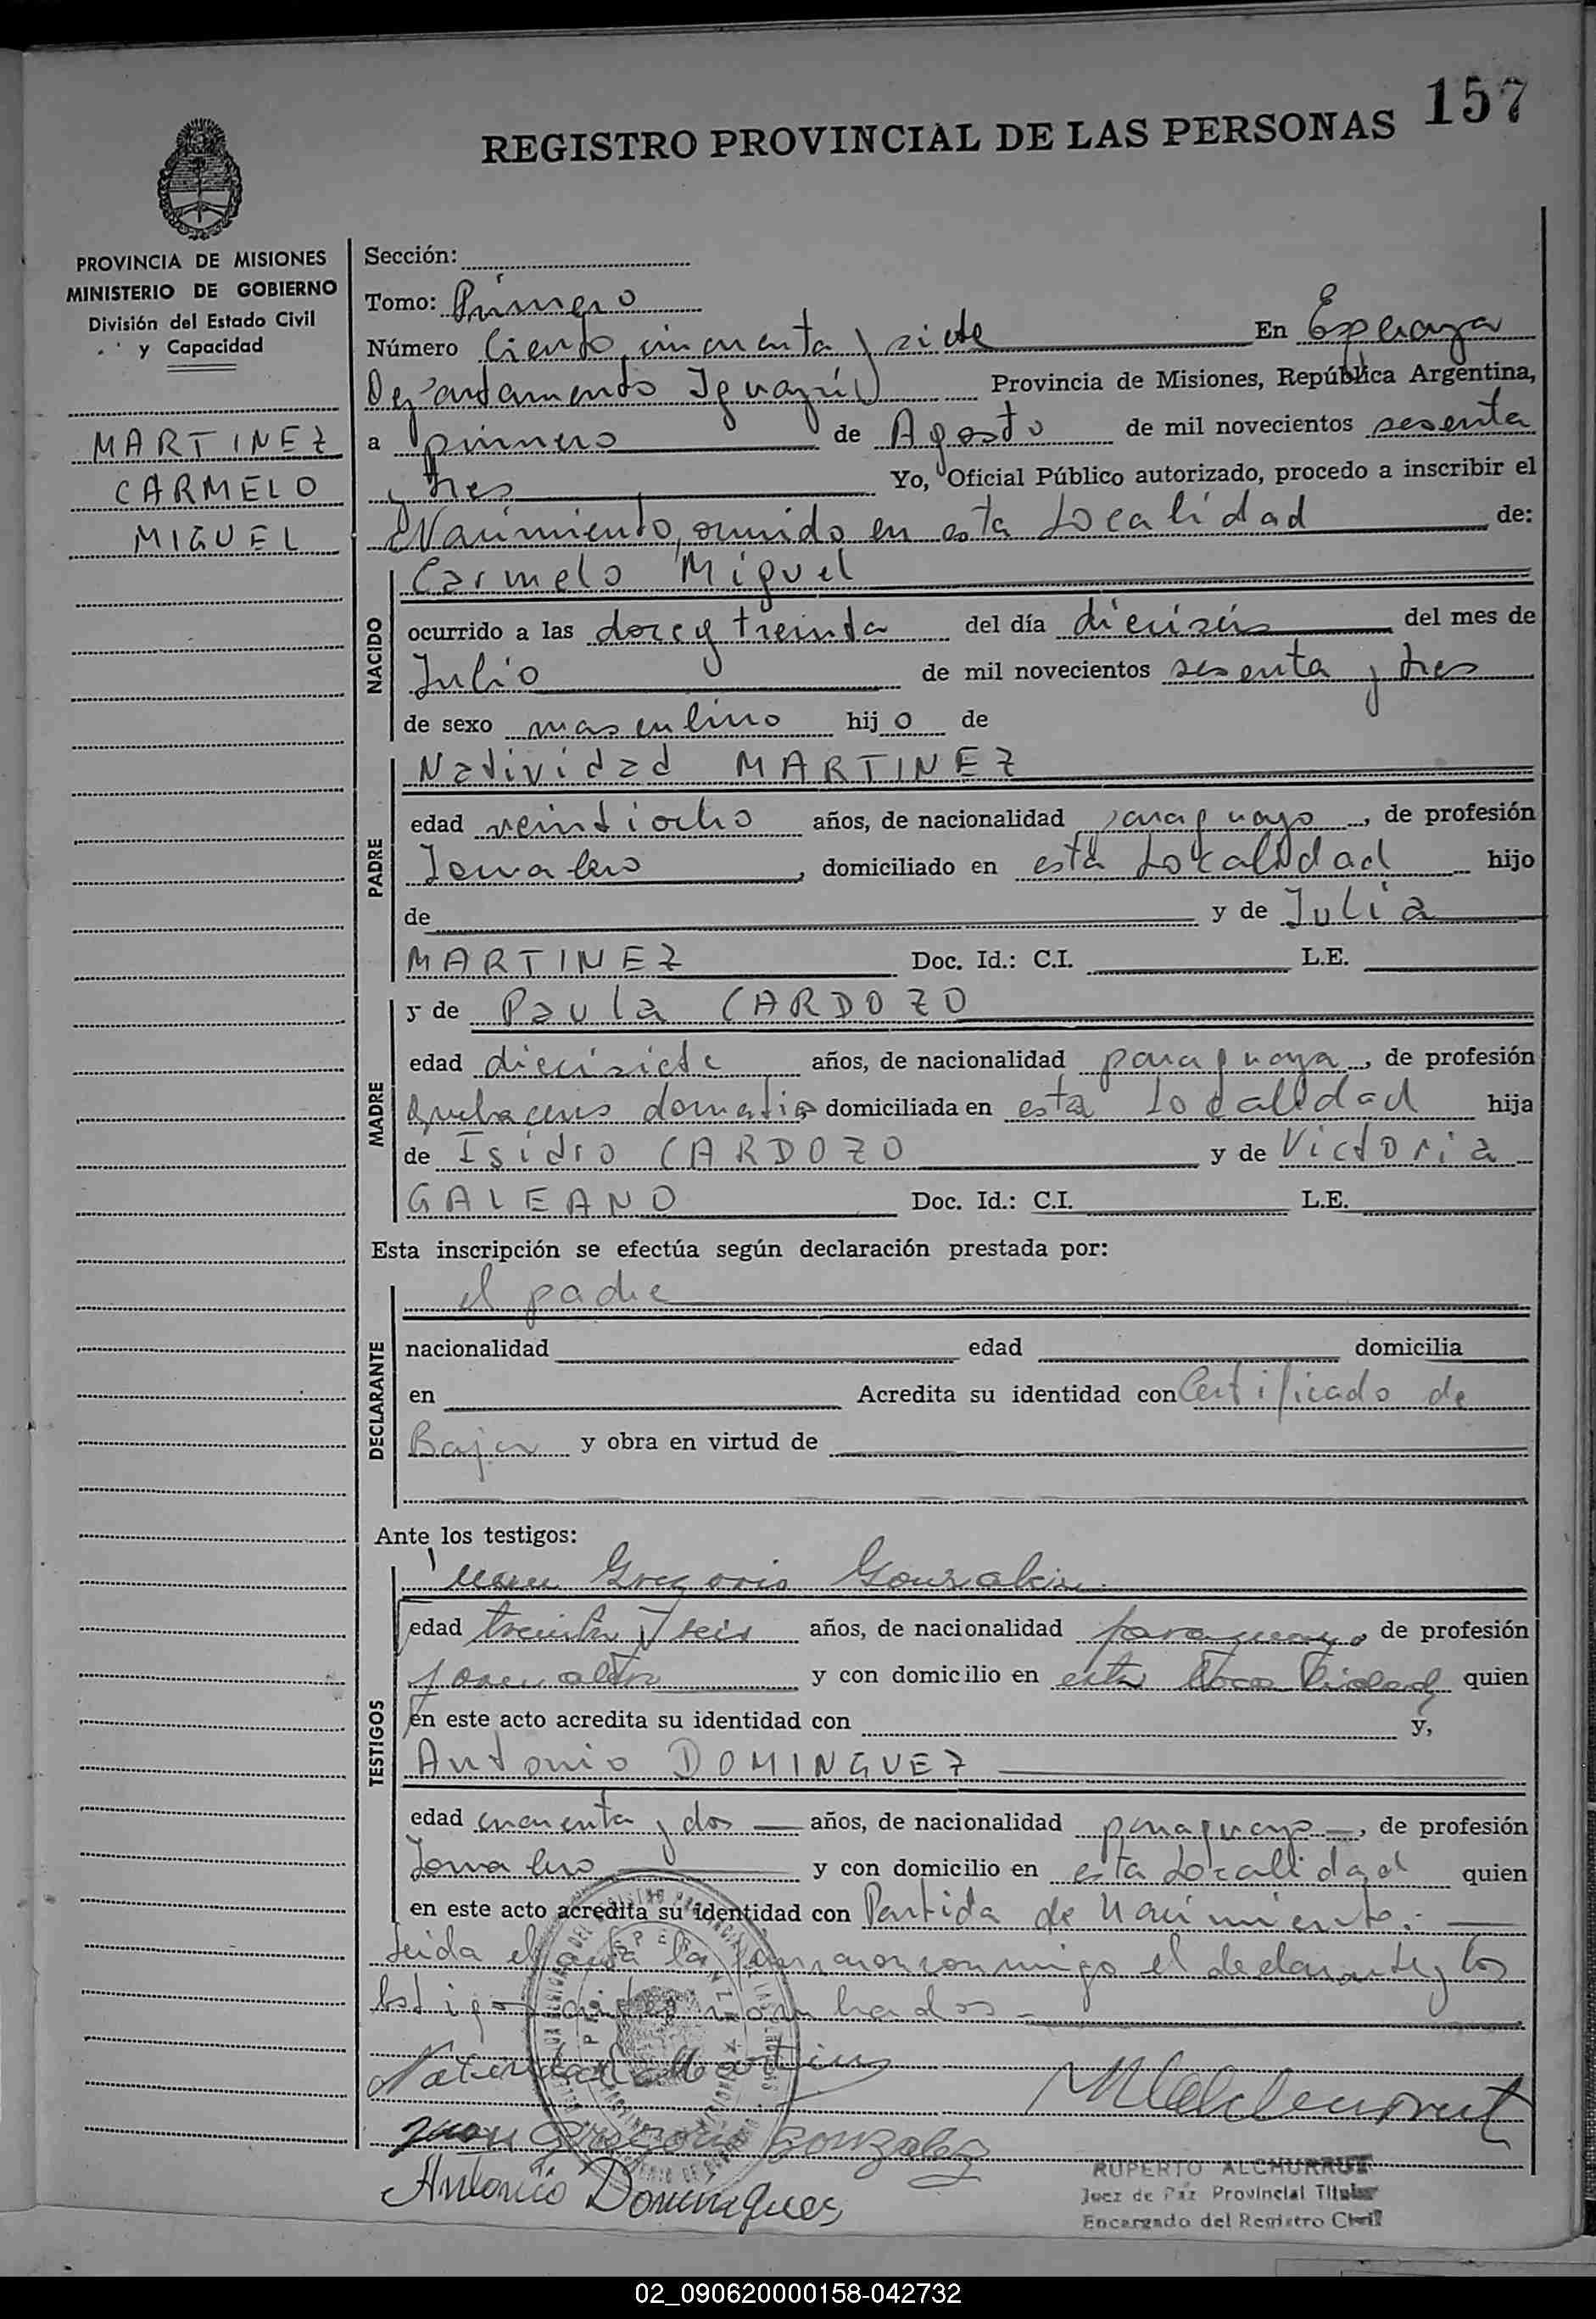 157
REGISTRO PROVINCIAL DE LAS PERSONAS
PROVINCIA DE MISIONES
MINISTERIO DE GOBIERNO
División del Estado Civil
y Capacidad
MARTINEZ
CARMELO
MIGUEL
Sección:
Tomo: Primero
Número Ciento cincuenta y siete En Esperanza
Departamento Iguazú Provincia de Misiones, República Argentina,
a primero de Agosto de mil novecientos sesenta
y tres Yo, Oficial Público autorizado, procedo a inscribir el
Nacimiento, ocurrido en esta Localidad de:
NACIDO
Carmelo Miguel
ocurrido a las doce y treinta del día dieciséis del mes de
Julio de mil novecientos sesenta y tres
de sexo masculino hijo de
PADRE
Natividad MARTINEZ
edad veintiocho años, de nacionalidad paraguayo, de profesión
Jornalero, domiciliado en esta Localidad hijo
de y de Julia
MARTINEZ Doc. Id.: C.I. L.E.
MADRE
y de Paula CARDOZO
edad diecisiete años, de nacionalidad paraguaya, de profesión
Quehaceres domestic domiciliada en esta Localidad hija
de Isidro CARDOZO y de Victoria
GALEANO Doc. Id.: C.I. L.E.
Esta inscripción se efectúa según declaración prestada por:
DECLARANTE
el padre
nacionalidad edad domicilia
en Acredita su identidad con Certificado de
Baja y obra en virtud de
Ante los testigos:
TESTIGOS
Juan Gregorio Gonzalez
edad treinta y seis años, de nacionalidad paraguayo, de profesión
jornalero y con domicilio en esta localidad quien
en este acto acredita su identidad con y,
Antonio DOMINGUEZ
edad cuarenta y dos años, de nacionalidad paraguayo, de profesión
Jornalero y con domicilio en esta Localidad quien
en este acto acredita su identidad con Partida de Nacimiento.-
Leida el acta la firmaron conmigo el declarante y los
testigos antes nombrados -
Natividad Martinez
Juan Gregorio Gonzalez
Antonio Domingues
RUPERTO ALCHURRUT
Juez de Paz Provincial Titular
Encargado del Registro Civil
02_090620000158-042732